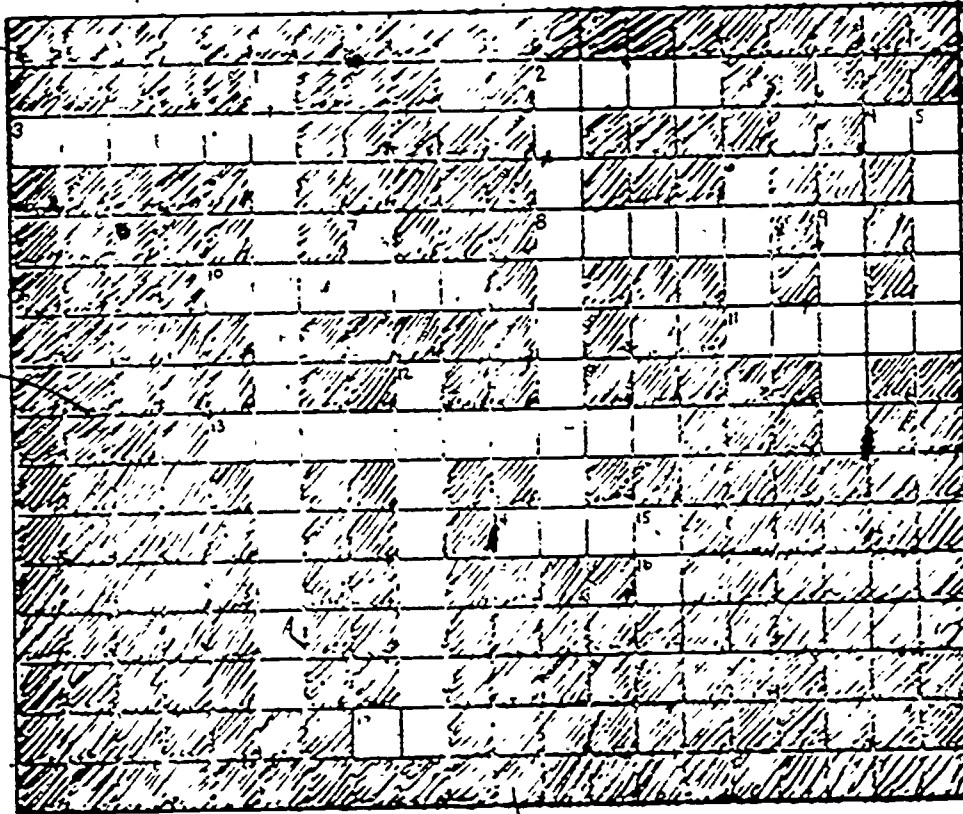 1 2
3 4 5
6
7 8 9
10
11
12
13
14 15
16
17